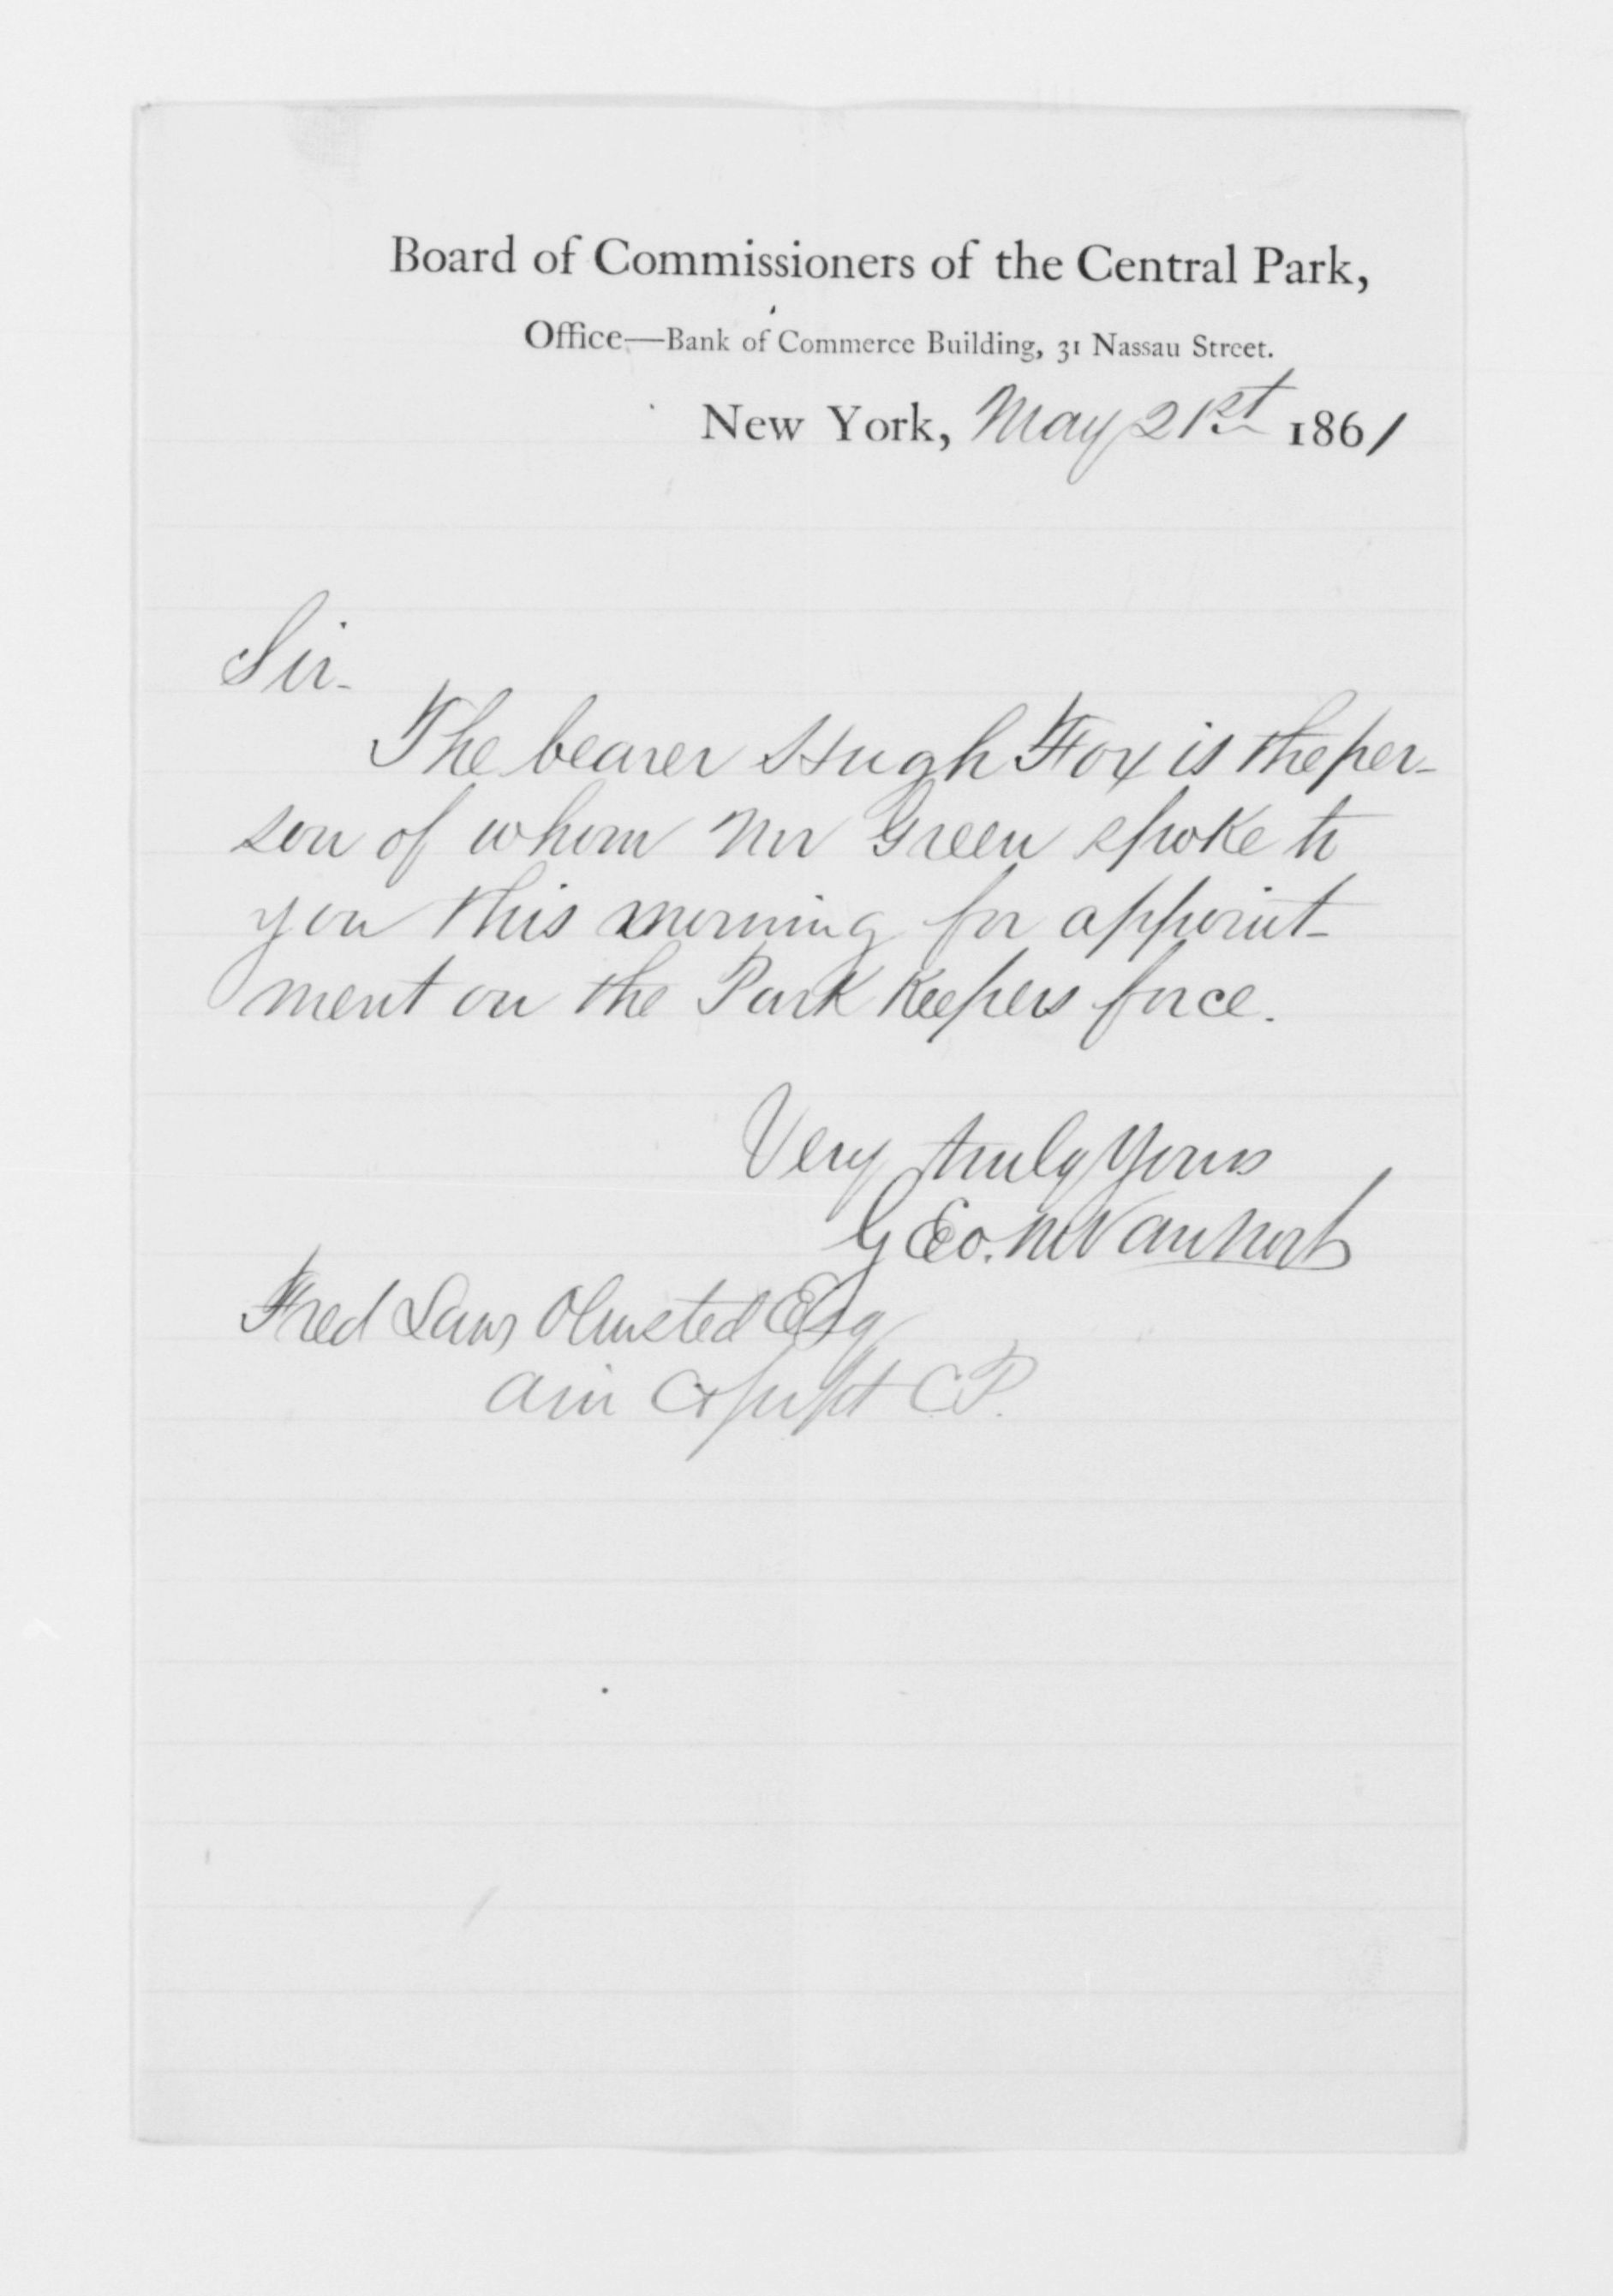 Board of Commissioners of the Central Park,
Office—Bank of Commerce Building, 31 Nassau Street.
New York, May 21st 1861
Sir-
The bearer Hugh Fox is the per-
son of whom Mr Green spoke to
you this morning for appoint-
ment on the Park Keepers force.
Very truly Yours
Geo. M Van Nort
Fred Law Olmsted Esq
C.P.